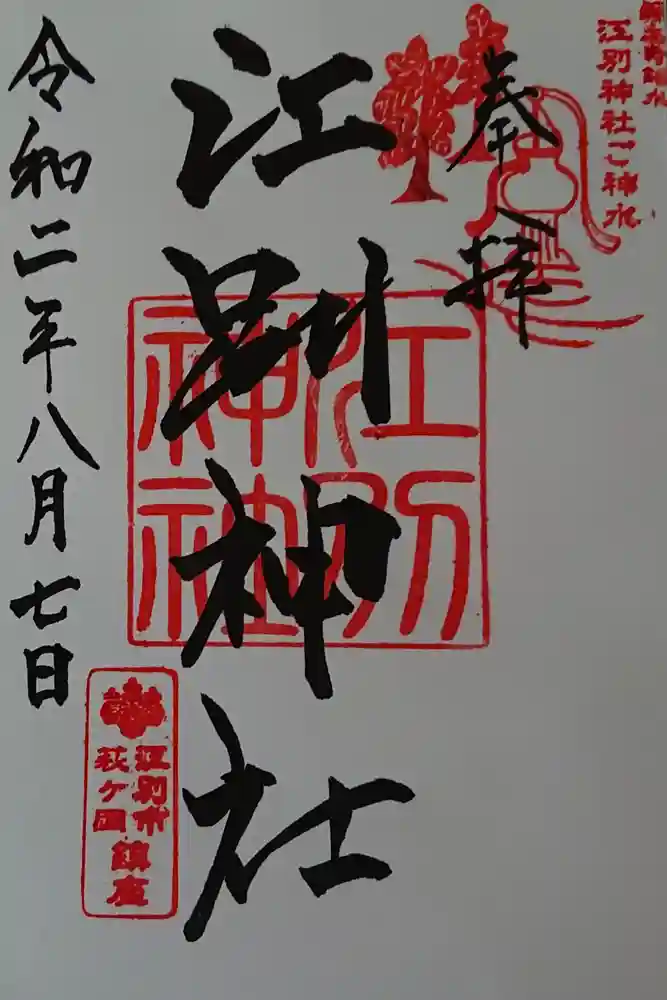 江別神社ご神水
奉拝
江別神社
江別神社
令和二年八月七日
江別市
萩ヶ岡
鎮座